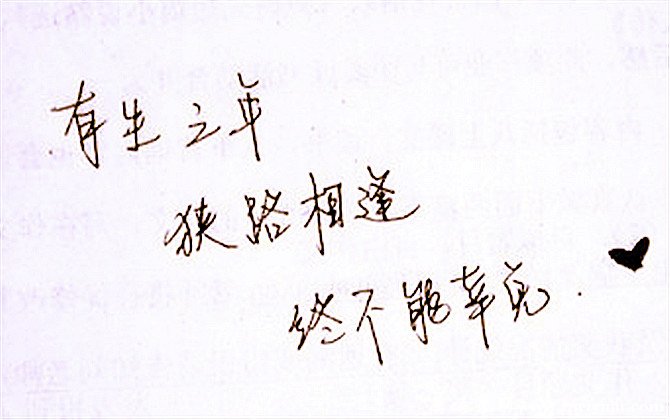 有生之年
狭路相逢
终不能幸免.